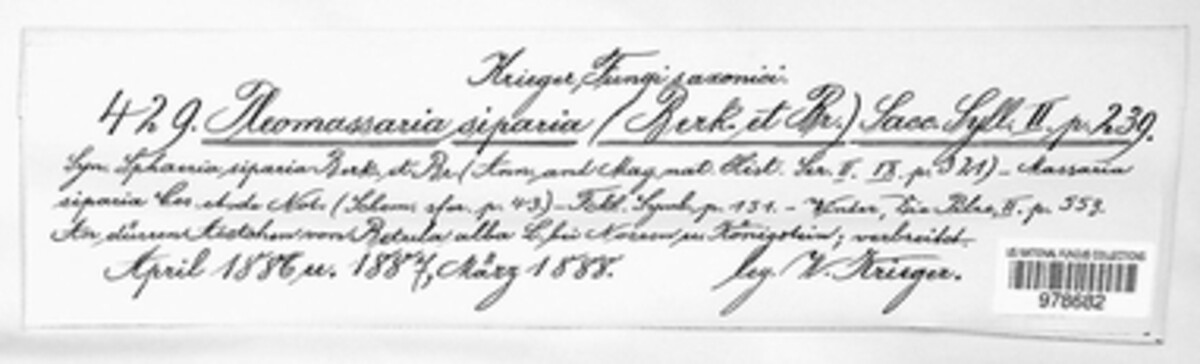 Krieger, Fungi saxonici.
429. Pleomassaria siparia (Berk. et Br.) Sacc. Syll. II. p. 239.
Syn. Sphaeria siparia Berk. et Br. (Ann. and Mag. nat. Hist. Ser. II. IX. p. 321) – Massaria
siparia Ces. et de Not. (Schem. sfer. p. 43) – Fckl. Symb. p. 151. – Winter, Die Pilze, II. p. 553.
An dürren Aestchen von Betula alba L. bei Nossen u. Königstein; verbreitet.
April 1886 u. 1887, März 1888. leg. W. Krieger.
US NATIONAL FUNGUS COLLECTIONS
978682